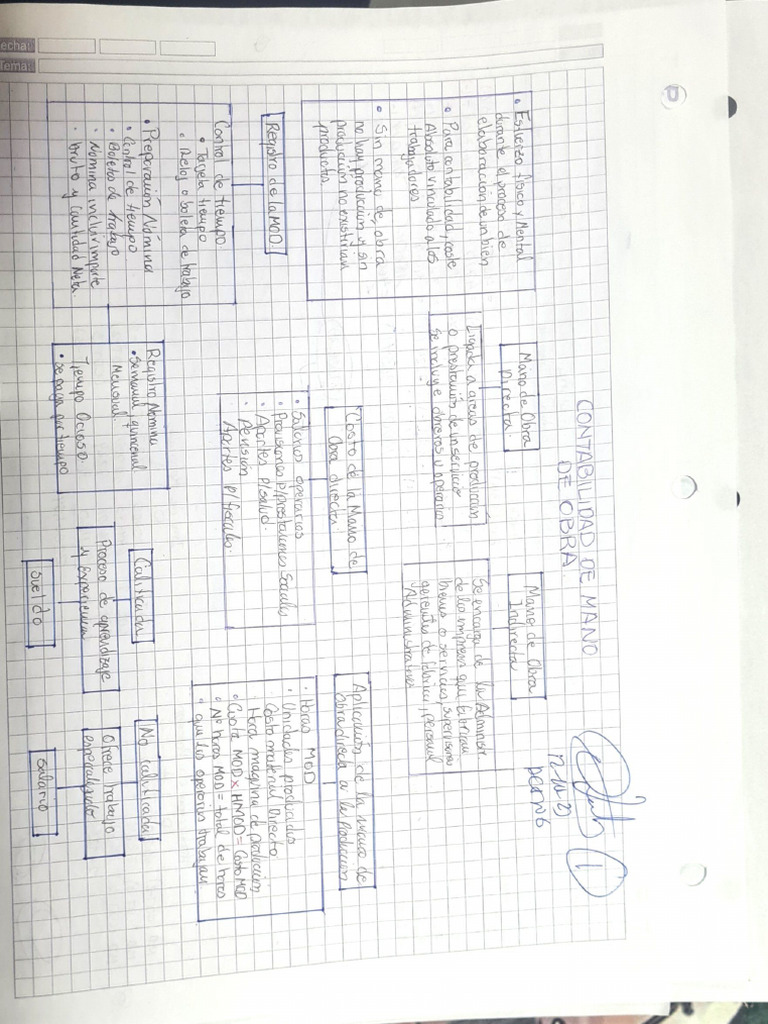 echa:
Tema:
CONTABILIDAD DE MANO
DE OBRA
1
• Esfuerzo físico y Mental
durante el proceso de
elaboración de un bien
• Para contabilidad, coste
Absoluto vinculado a los
trabajadores
• Sin mano de obra
no hay producción y sin
producción no existirían
productos.
Mano de Obra
Directa.
Ligada a areas de producción
o prestación de un servicio
se incluye obreros u operario
Mano de Obra
Indirecta
Se encarga de la Administr
de las empresas que fabrican
bienes o servicios, supervisores
gerentes de fabrica, personal
Administrativo
Registro de la MOD.
Control de tiempo
• Tarjeta tiempo
• Reloj o boleta de trabajo
• Preparación Nómina
• Control de tiempo
• Boletas de trabajo
• Nomina incluir importe
• bruto y Cantidad Neta.
Registro Nómina
• Semanal, quincenal
Mensual
Tiempo Ocioso.
• Se paga por tiempo
Costo de la Mano de
Obra directa
• Salarios operarios
• Provisiones p/prestaciones Sociales
• Aportes p/salud.
• Pensión
Aportes p/fiscales.
Aplicación de la mano de
obra directa a la Producción
• Horas MOD
• Unidades producidas
Costo material Directo
Hora maquina de producción
• Cuota MOD x HMOD = Costo MOD
• No horas MOD = total de horas
• que los operarios trabajan
Calificada
Proceso de aprendizaje
y experiencia
Sueldo
No calificada
Ofrece trabajo
especializado
Salario